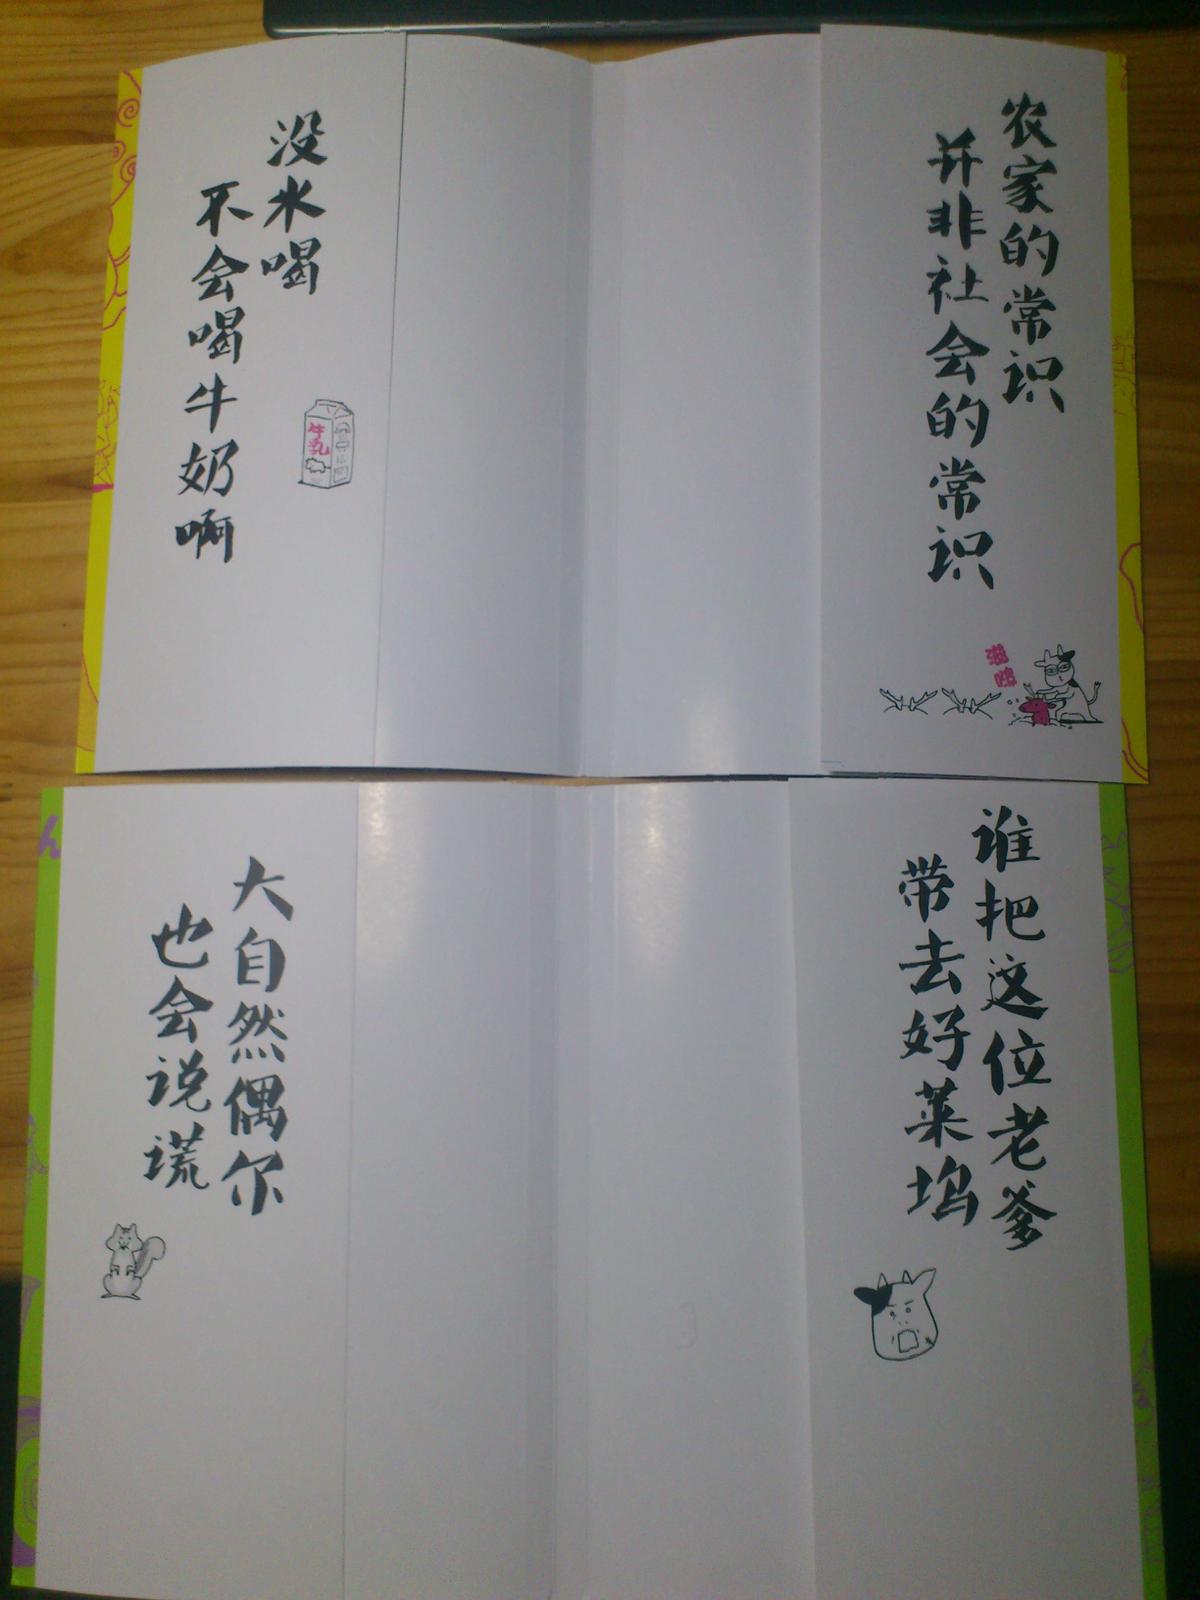 农家的常识
并非社会的常识
没水喝
不会喝牛奶啊
牛乳
谁把这位老爹
带去好菜坞
大自然偶尔
也会说谎
ん